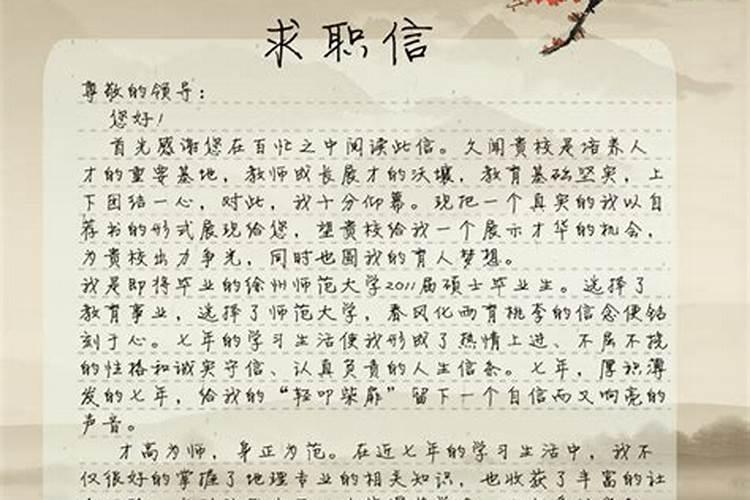 求职信
尊敬的领导：
您好！
首先感谢您在百忙之中阅读此信。久闻贵校是培养人
才的重要基地，教师成长展才的沃壤，教育基础坚实，上
下团结一心，对此，我十分仰慕。现把一个真实的我以自
荐书的形式展现给您，望贵校给我一个展示才华的机会，
为贵校出力争光，同时也圆我的育人梦想。
我是即将毕业的徐州师范大学2011届硕士毕业生。选择了
教育事业，选择了师范大学，春风化雨育桃李的信念便铭
刻于心。七年的学习生活使我形成了热情上进、不屈不挠
的性格和诚实守信、认真负责的人生信条。七年，厚积薄
发的七年，给我的“轻叩柴扉”留下一个自信而又响亮的
声音。
才高为师，身正为范。在近七年的学习生活中，我不
仅很好的掌握了地理专业的相关知识，也收获了丰富的社